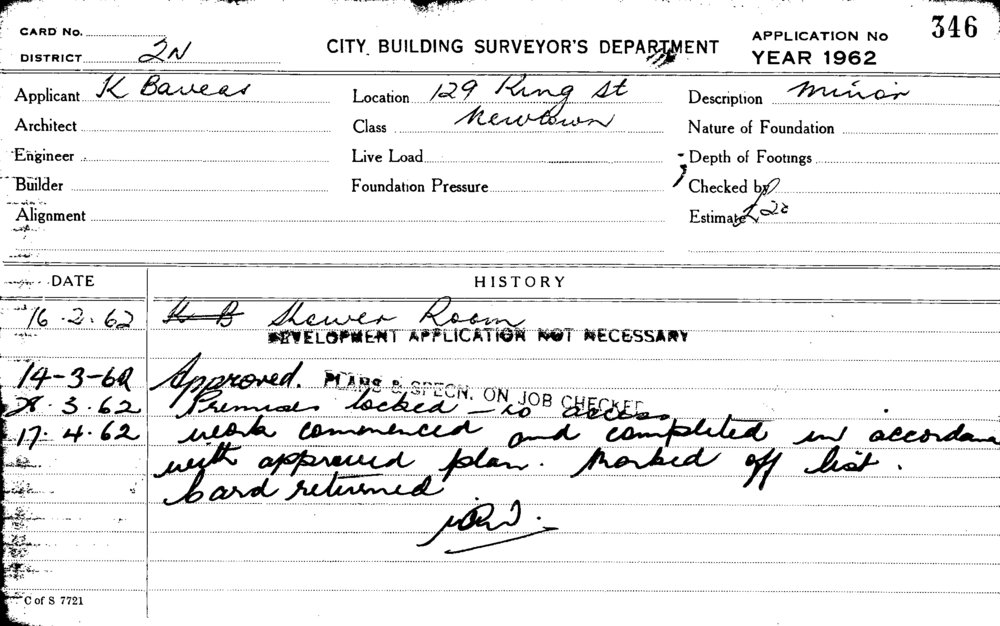 CARD No.
DISTRICT 2N
CITY BUILDING SURVEYOR'S DEPARTMENT
APPLICATION No 346
YEAR 1962
Applicant K Baveas
Location 129 King St
Description Minor
Architect
Class Newtown
Nature of Foundation
Engineer
Live Load
Depth of Footings
Builder
Foundation Pressure
Checked by
Alignment
Estimate £20
DATE HISTORY
16.2.62 K B Shower Room
DEVELOPMENT APPLICATION NOT NECESSARY
14-3-62 Approved. PLANS & SPECN. ON JOB CHECKED
28.3.62 Premises locked - no access
17.4.62 work commenced and completed in accordance
with approved plan. Marked off list.
Card returned
C of S 7721